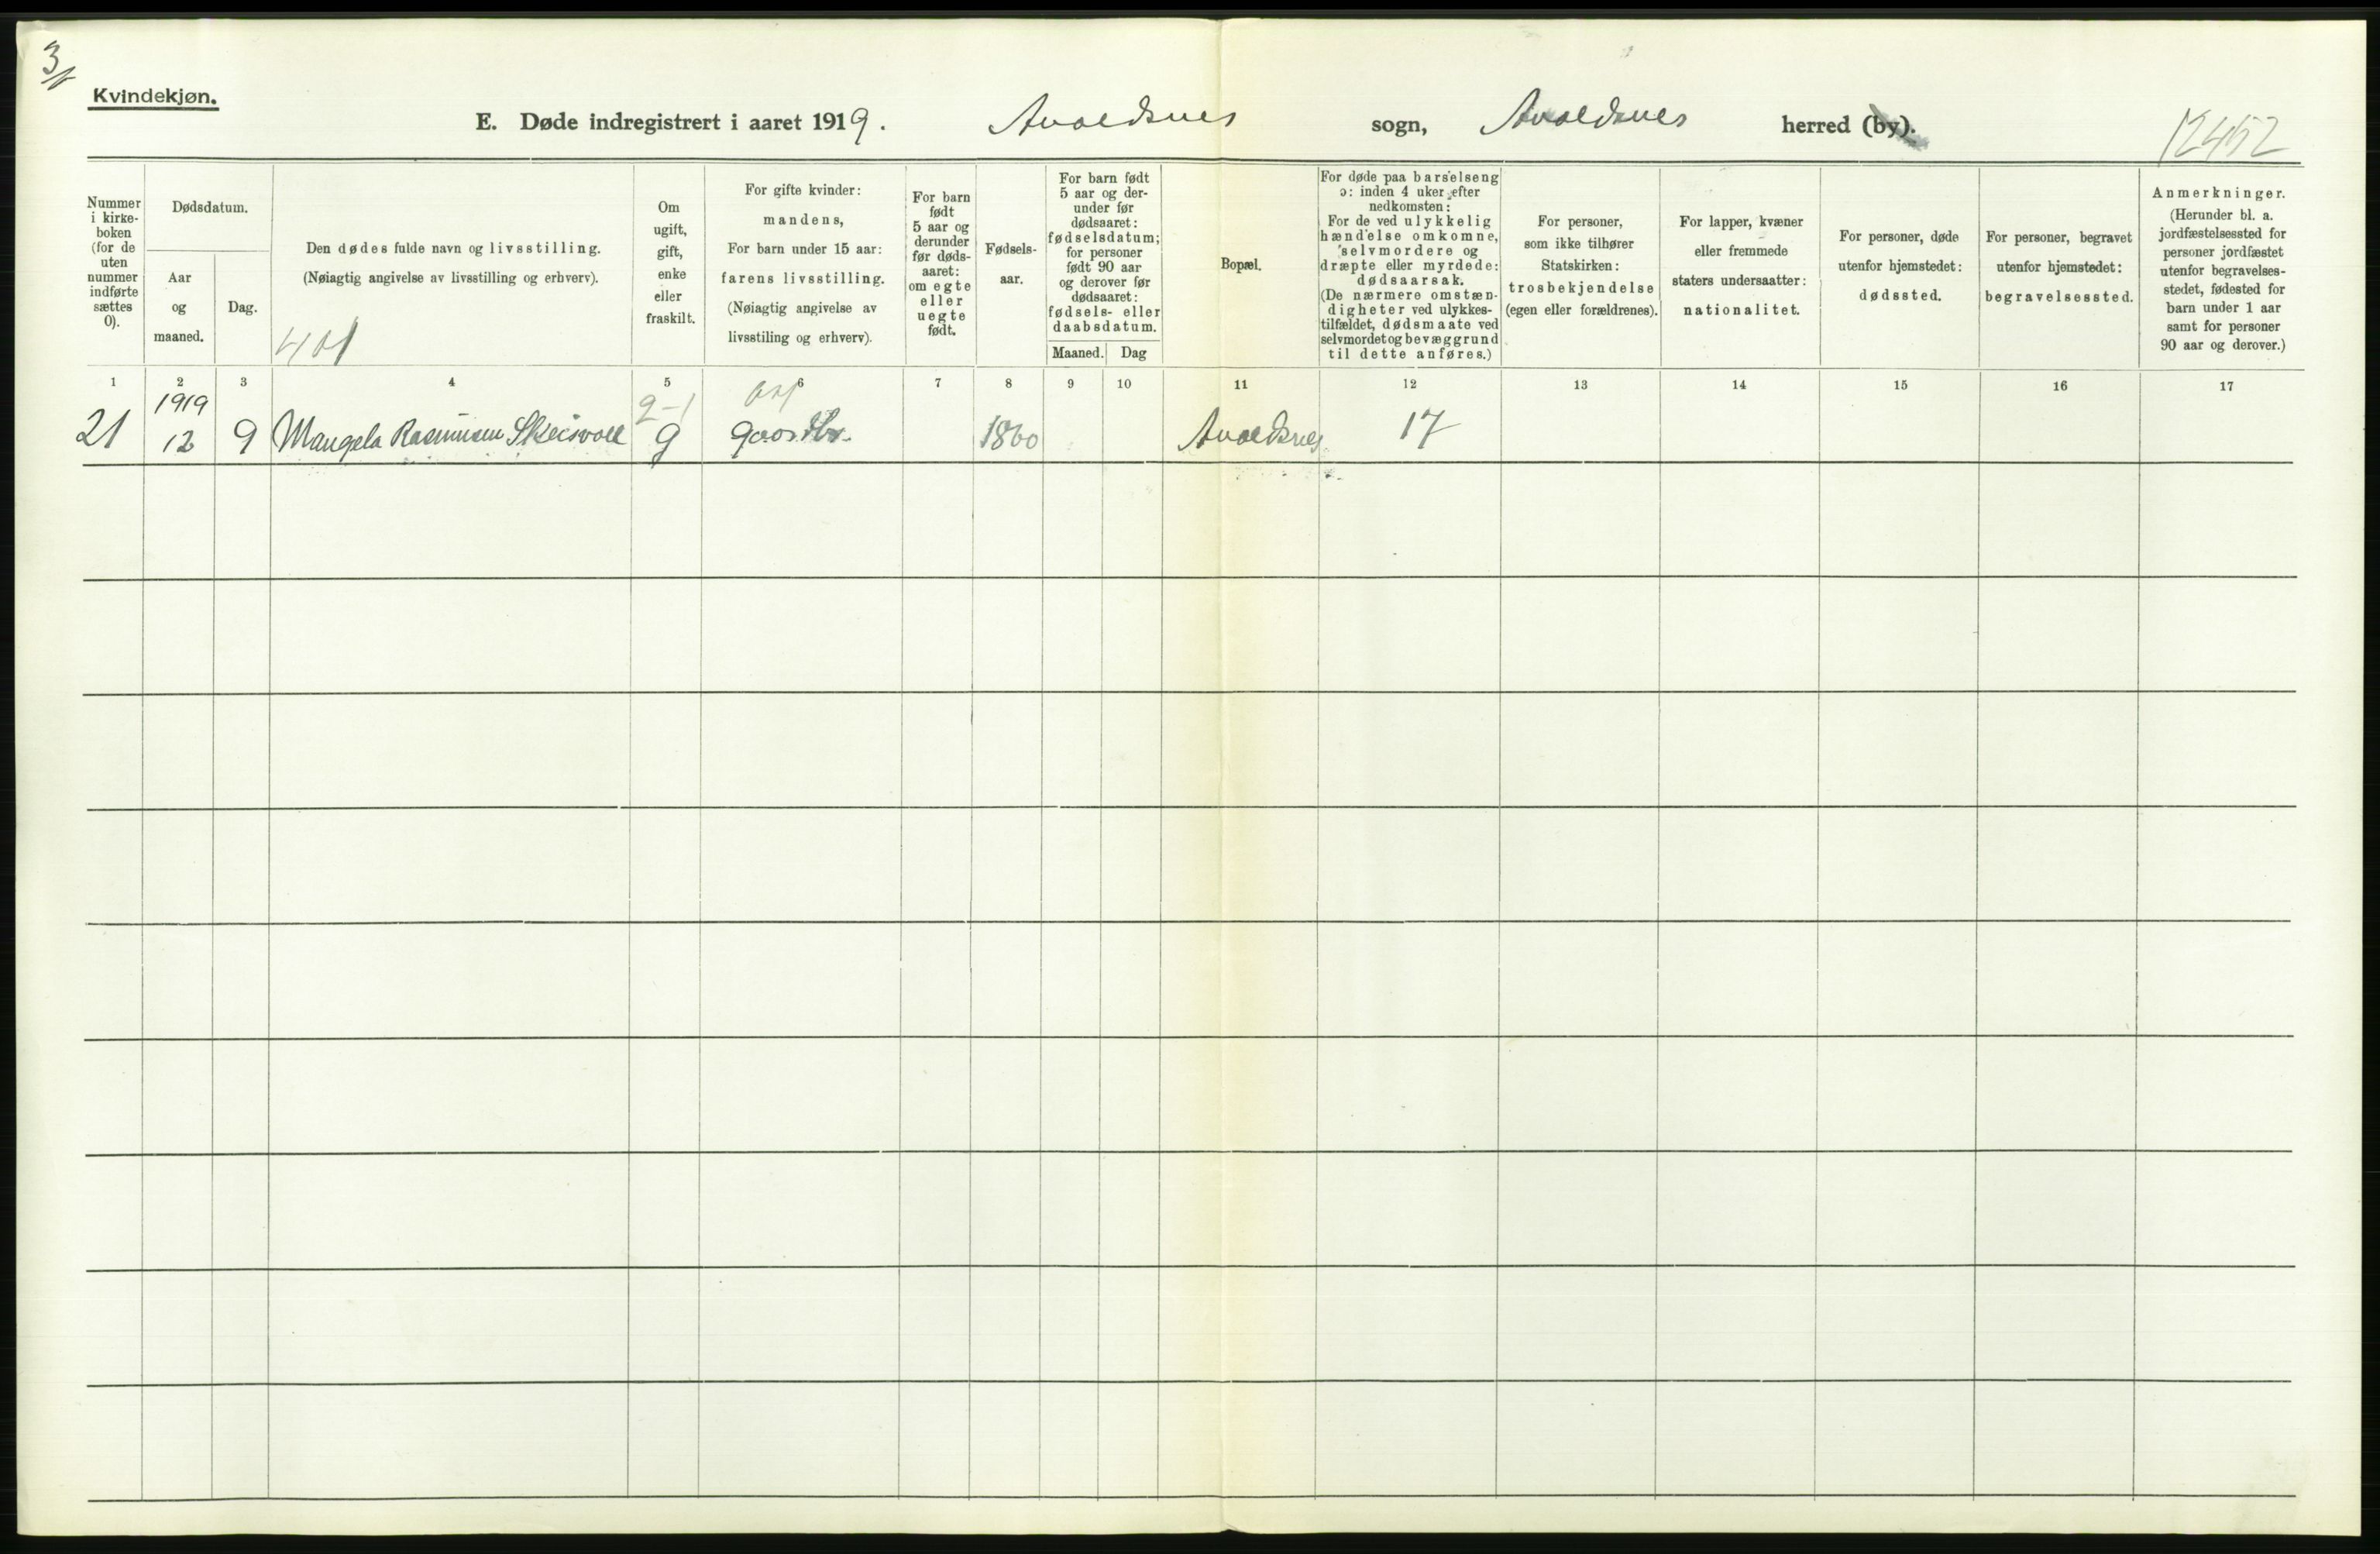 3/
Kvindekjøn.
E. Døde indregistrert i aaret 1919. Avaldsnes sogn, Avaldsnes herred (by).
12452
Nummer i kirke- boken (for de uten nummer indførte sættes 0).
Dødsdatum.
Aar og maaned.
Dag.
Den dødes fulde navn og livsstilling.
(Nøiagtig angivelse av livsstilling og erhverv).
401
Om ugift, gift, enke eller fraskilt.
For gifte kvinder:
mandens,
For barn under 15 aar:
farens livsstilling.
(Nøiagtig angivelse av
livsstiling og erhverv).
For barn født 5 aar og derunder før døds- aaret: om egte eller uegte født.
Fødsels- aar.
For barn født
5 aar og der-
under før
dødsaaret:
fødselsdatum;
for personer
født 90 aar
og derover før
dødsaaret:
fødsels- eller
daabsdatum.
Maaned. Dag
Bopæl.
For døde paa barselseng
ɔ: inden 4 uker efter
nedkomsten:
For de ved ulykkelig
hændelse omkomne,
selvmordere og
dræpte eller myrdede:
dødsaarsak.
(De nærmere omstæn-
digheter ved ulykkes-
tilfældet, dødsmaate ved
selvmordet og bevæggrund
til dette anføres.)
For personer,
som ikke tilhører
Statskirken:
trosbekjendelse
(egen eller forældrenes).
For lapper, kvæner
eller fremmede
staters undersaatter:
nationalitet.
For personer, døde
utenfor hjemstedet:
dødssted.
For personer, begravet
utenfor hjemstedet:
begravelsessted.
Anmerkninger.
(Herunder bl. a.
jordfæstelsessted for
personer jordfæstet
utenfor begravelses-
stedet, fødested for
barn under 1 aar
samt for personer
90 aar og derover.)
1 2 3 4 5 6 7 8 9 10 11 12 13 14 15 16 17
1919 2-1
21 12 9 Mangela Rasmusen Skeisvoll g 1860 Avaldsnes 17